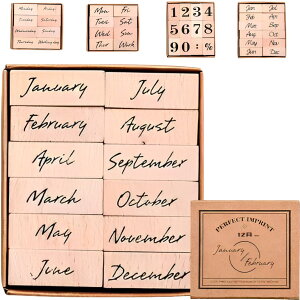 Monday Friday
Tuesday Saturday
Wednesday Sunday
Thursday Wednesday
Mon Fri
Tue Sat
Wed Sun
Thur Work
1 2 3 4
5 6 7 8
9 0 : %
Jan Jul
Feb Aug
Apr Sep
Mar Oct
May Nov
Jun Dec
January July
February August
April September
March October
May November
June December
PERFECT IMPRINT
12月
January
February